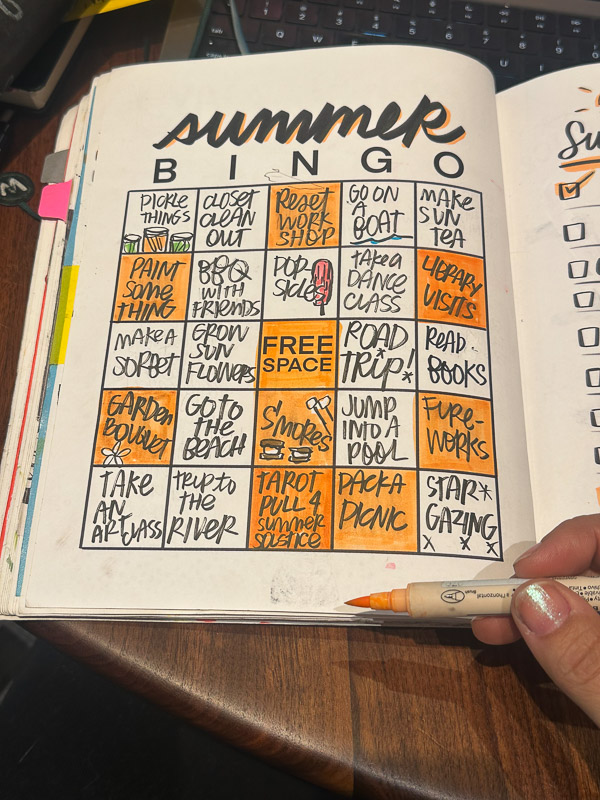 summer
BINGO
PICKLE
THINGS
CLOSET
CLEAN
OUT
Reset
WORK
SHOP
GO ON
A
BOAT
MAKE
SUN
TEA
PAINT
SOME
THING
BBQ
WITH
FRIENDS
POP-
SICLE
TAKE A
DANCE
CLASS
LIBRARY
VISITS
MAKE A
SORBET
GROW
SUN
FLOWERS
FREE
SPACE
ROAD
TRIP!
READ
BOOKS
GARDEN
BOUQUET
GO TO
the
BEACH
S'MORES
JUMP
INTO A
POOL
FIRE-
WORKS
TAKE
AN
ART CLASS
TRIP to
THE
RIVER
TAROT
PULL 4
SUMMER
SOLSTICE
PACK A
PICNIC
STAR
GAZING
Su
M